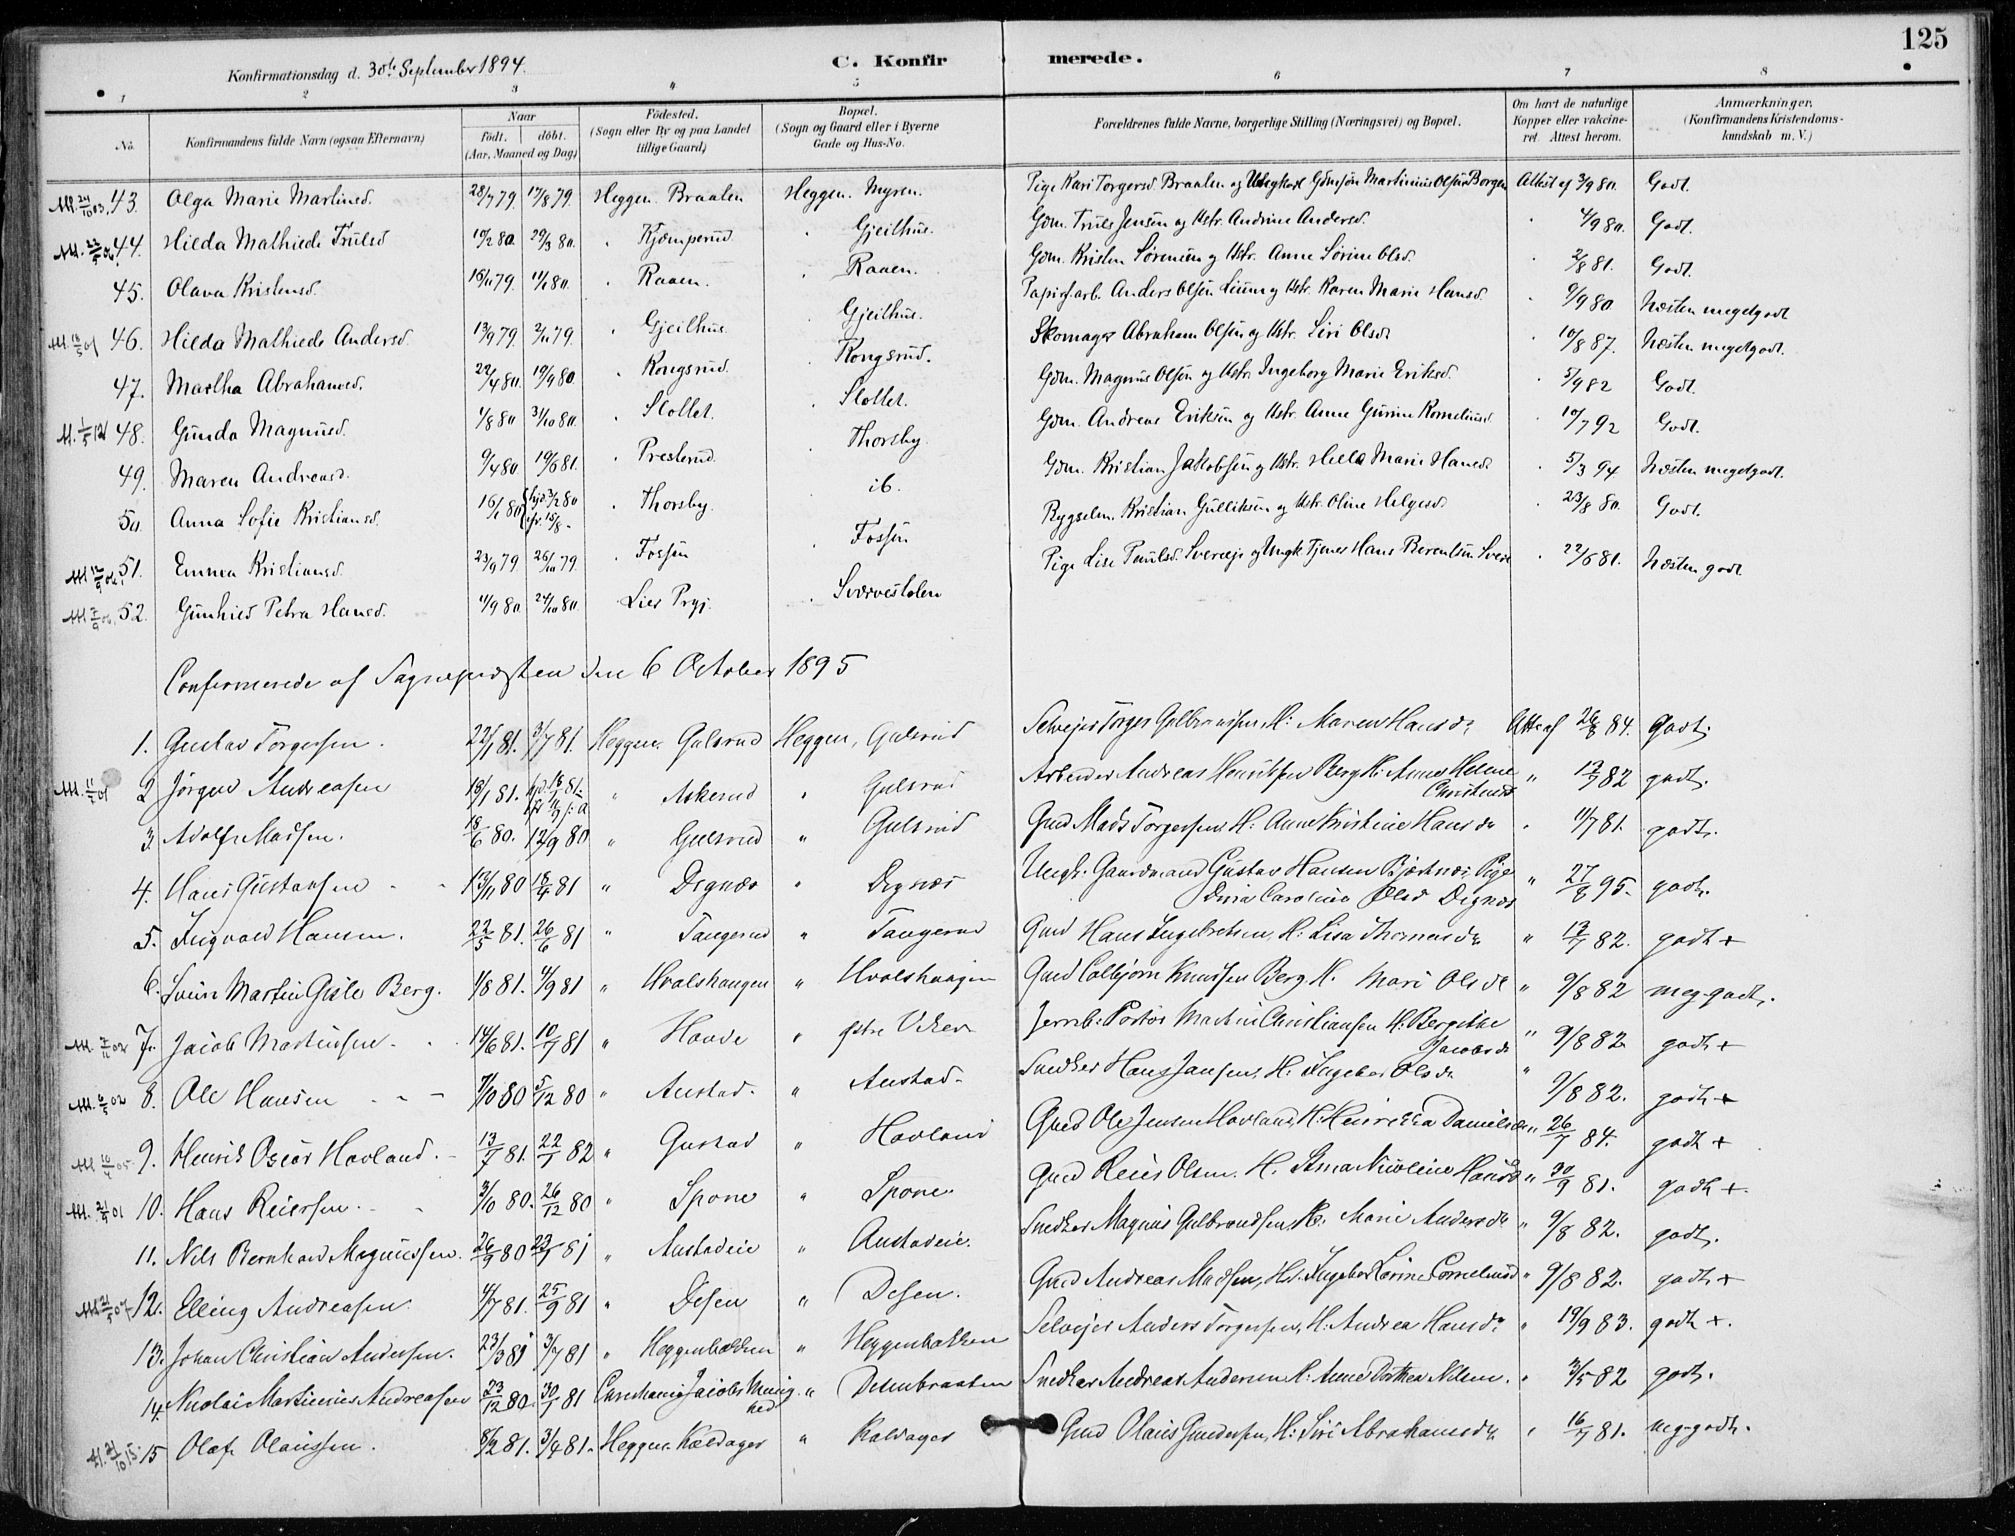 125
Konfirmationsdag d. 30te September 1894.
C. Konfirmerede.
1 2 3 4 5 6 7 8
No.
Konfirmandens fulde Navn (ogsaa Efternavn)
Naar
födt. döbt.
(Aar, Maaned og Dag)
Födested.
(Sogn eller By og paa Landet
tillige Gaard)
Bopæl.
(Sogn og Gaard eller i Byerne
Gade og Hus-No.
Forældrenes fulde Navne, borgerlige Stilling (Næringsvei) og Bopæl.
Om havt de naturlige
Kopper eller vakcine-
ret. Attest herom.
Anmærkninger.
(Konfirmandens Kristendoms-
kundskab m. V.)
43. Olga Marie Martinsd. 28/7 79. 17/8 79. Heggen. Braaten Heggen. Myren. Pige Kari Torgersd Braaten og Martinius Olsen Borgen Attest af 3/9 80. Godt.
44. Hilda Mathilde Trulsd 10/2 80. 29/3 80. Kjæmperud Gjeilhus. Gdm. Truls Jensen og Hstr. Andrine Andersd. 4/9 80. Godt.
45. Olava Kristensd. 16/11 79. 11/1 80. Raaen. Raaen. Gdm. Kristen Sørensen og Hstr. Anne Sørine Olsd. 2/8 81. Godt.
46. Hilda Mathilde Andersd. 13/9 79. 2/11 79. Gjeilhus. Gjeilhus. Papirfarb. Anders Olsen Lium og Hstr. Karen Marie Hansd. 9/9 80. Næsten meget godt
47. Martha Abrahamsd. 22/4 80. 19/9 80 Kongsrud. Kongsrud. Skomager Abraham Olsen og Hstr. Siri Olsd. 10/8 87. Næsten meget godt.
48. Gunda Magnusd. 1/8 80 31/10 80. Slottet. Slottet. Gdm. Magnus Olsen og Hstr. Ingeborg Marie Eriksd. 5/9 82 Godt.
49. Maren Andreasd. 9/4 80 19/6 81. Presterud. Thorsby. Gdm. Andreas Eriksen og Hstr. Anne Gurine Korneliusd 10/7 92 Godt.
50. Anna Sofie Kristiansd. 16/1 80 hjd. 3/2 80 Thorsby. ib. Gdm. Kristian Jakobsen og Hstr. Helle Marie Hansd. 5/3 94 Næsten meget godt.
51. Emma Kristiansd. 23/9 79. 26/10 79. Fossen Fossen Rygselm. Kristian Gulliksen og Hstr. Oline Helgesd. 23/8 80. Godt.
52. Gunhild Petra Hansd. 11/9 80. 24/10 80. Lier Prgj. Sværvestolen Pige Lise Paulsd. Sværeie og Ungk. Tjener Hans Berentsen 22/6 81. Næsten godt
Confirmerede af Sognepræsten den 6 October 1895
1. Gustav Torgersen. 22/1 81. 3/7 81. Heggen. Gulsrud Heggen, Gulsrud Selveier Torger Gulbrandsen, H: Maren Hansdr Att. af 26/8 84. Godt.
2 Jørgen Andreasen 18/1 81. Askerud " Gulsrud Arbeider Andreas Henriksen Berg H. Anne Helene Christensd " 13/7 82 godt.
3. Adolf Madsen. 18/6 80. 12/9 80 " Gulsrud " Gulsrud Gmd Mads Torgersen H. Anne Kristine Hansdr " 11/7 81. godt.
4. Hans Gustavsen 13/11 80 18/4 81 " Dignæs " Dignæs Ungk. Gaardmand Gustav Hansen Bjertnæs, Pige Dina Caroline Olsd Dignæs " 27/8 95. godt.
5. Ingvald Hansen. 22/5 81. 26/6 81 " Tangerud " Tangerud Gmd Hans Ingebretsen, H: Lisa Thomasdr " 13/7 82. godt +
6. Svein Martin Gisle Berg. 1/8 81. 11/9 81 " Hvalshaugen " Hvalshaugen Gmd Colbjørn Knudsen Berg H. Mari Olsdr " 9/8 82 meg. godt.
7. Jacob Martinsen. 14/6 81. 10/7 81 " Hovde " østre Viker Jernb: Portør Martin Christiansen H: Bergitte Jacobsdr " 9/8 82 godt +
8. Ole Hansen 7/10 80 5/12 80 " Austad. " Austad. Snedker Hans Jansen, H. Ingebor Olsdr " 9/8 82. godt +
9. Henrik Oscar Hovland. 13/7 81. 22/1 82 " Gustad " Hovland Gmd Ole Jensen Hovland, H. Henrikka Danielsdr " 26/7 84. godt +
10. Hans Reiersen. 3/10 80. 26/12 80 " Spone " Spone. Gmd Reier Olsen. H. Anna Nicoline Hansd " 30/9 81. godt +.
11. Nils Bernhard Magnussen. 26/9 80 23/1 81 " Austadeie " Austadeie. Snedker Magnus Gulbrandsen, H. Marie Andersdr " 9/8 82. godt.
12. Elling Andreasen. 11/7 81. 25/9 81 " Desen " Desen. Gmd Andreas Madsen, H. Ingebor Lorine Corneliusd " 9/8 82. godt +
13. Johan Christian Andersen. 23/3 81 3/7 81 " Heggenbakken " Heggenbakken Selveier Anders Torgersen, H. Andrea Hansdr " 19/9 83. godt +.
14. Nicolai Martinius Andreasen 23/12 80. 30/1 81 Jacobs Menighed " Desenbraaten Snedker Andreas Andersen H. Anne Dorthea Nilsen. " 3/5 82 godt.
15 Olaf Olaussen. 8/2 81. 3/4 81. Heggen. Kaldager " Kaldager Gmd Olaus Gundersen, H: Siri Abrahamsdr " 16/7 81. meg-godt.